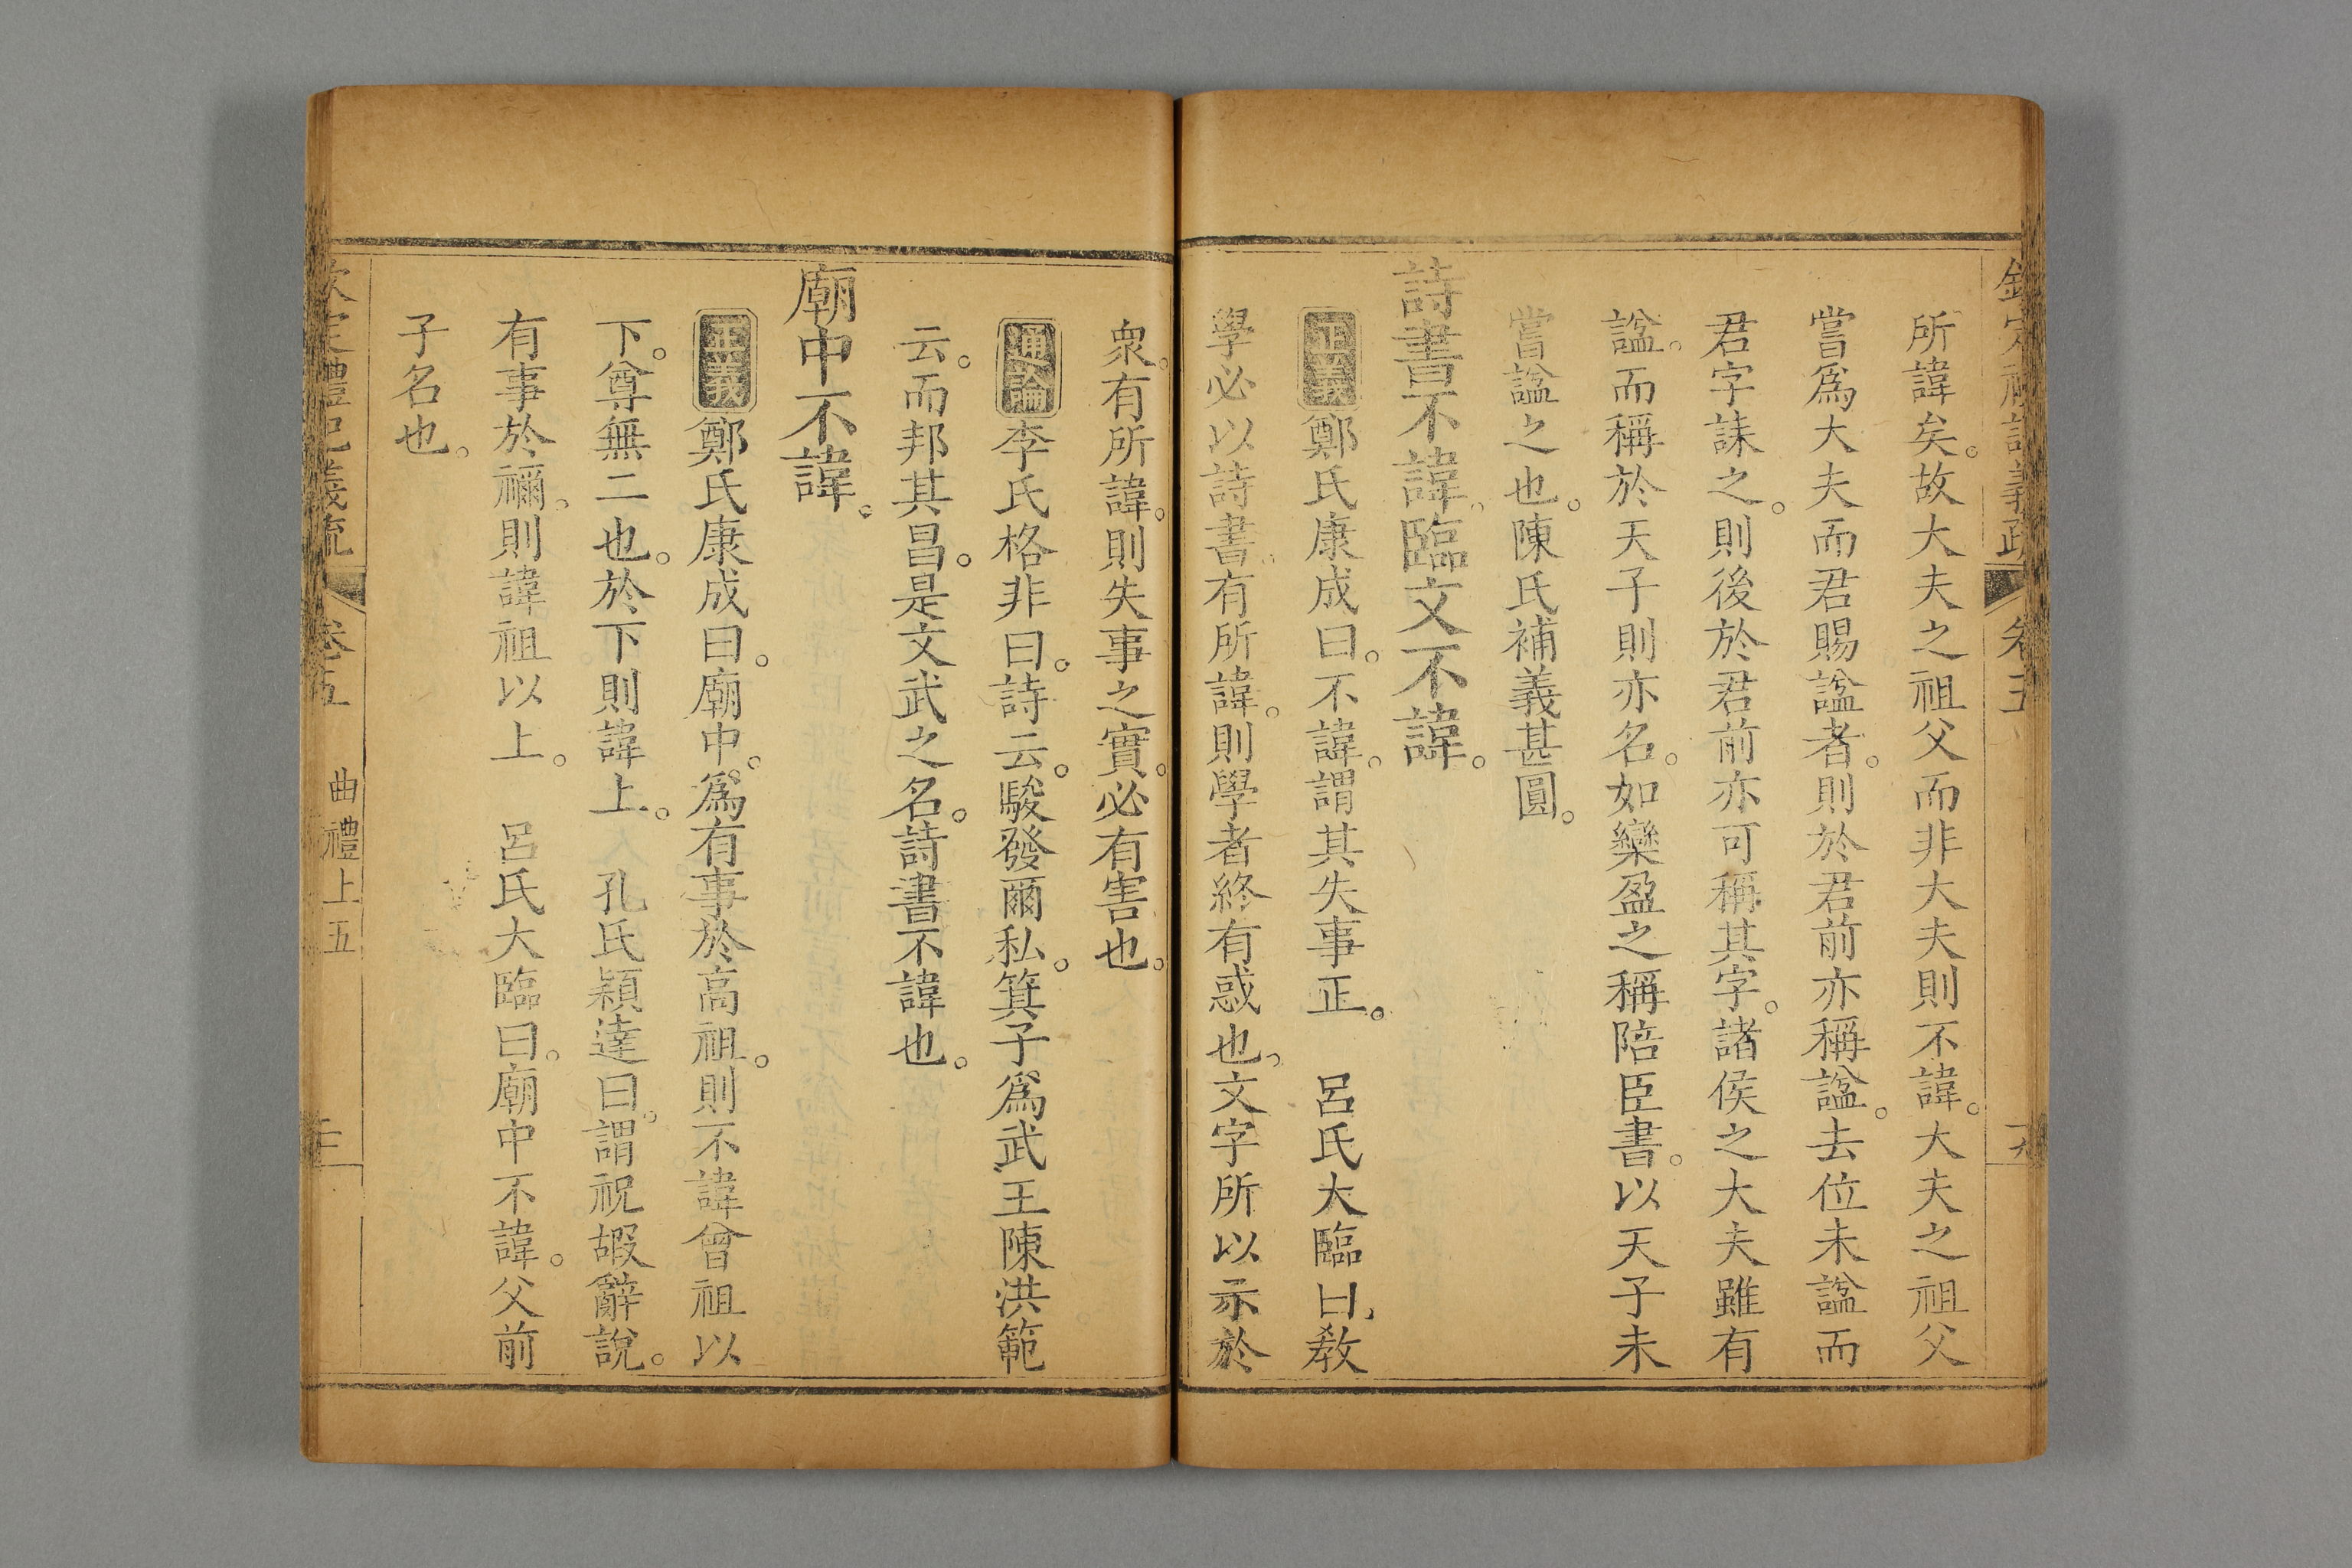 欽定禮記義疏 卷五
所諱矣。故大夫之祖父而非大夫則不諱。大夫之祖父
嘗爲大夫而君賜諡者。則於君前亦稱諡。去位未諡而
君字誄之。則後於君前亦可稱其字。諸侯之大夫雖有
諡。而稱於天子則亦名。如欒盈之稱陪臣書。以天子未
嘗諡之也。陳氏補義甚圓。
詩書不諱。臨文不諱。
正義鄭氏康成曰。不諱。謂其失事正。 呂氏大臨曰。教
學必以詩書。有所諱。則學者終有惑也。文字所以示於
衆。有所諱。則失事之實。必有害也。
通論李氏格非曰。詩云。駿發爾私。箕子爲武王陳洪範
云。而邦其昌。是文武之名。詩書不諱也。
廟中不諱。
正義鄭氏康成曰。廟中。爲有事於高祖。則不諱曾祖以
下。尊無二也。於下則諱上。 孔氏穎達曰。謂祝嘏辭說。
有事於禰。則諱祖以上。 呂氏大臨曰。廟中不諱。父前
子名也。
欽定禮記義疏 卷五 曲禮上五